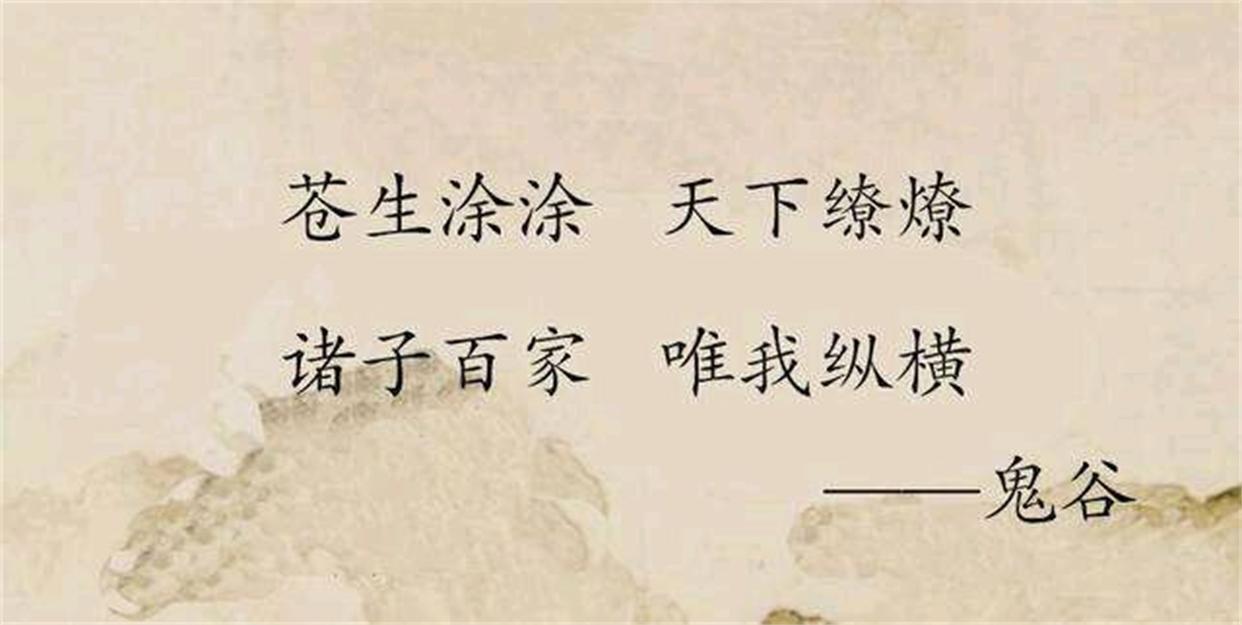 苍生涂涂 天下缭燎
诸子百家 唯我纵横
——鬼谷